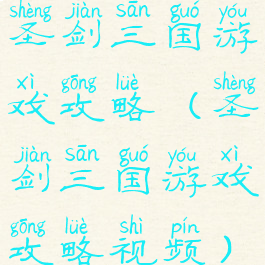 shèng jiàn sān guó yóu
圣剑三国游
xì gōng lüè shèng
戏攻略（圣
jiàn sān guó yóu xì
剑三国游戏
gōng lüè shì pín
攻略视频）